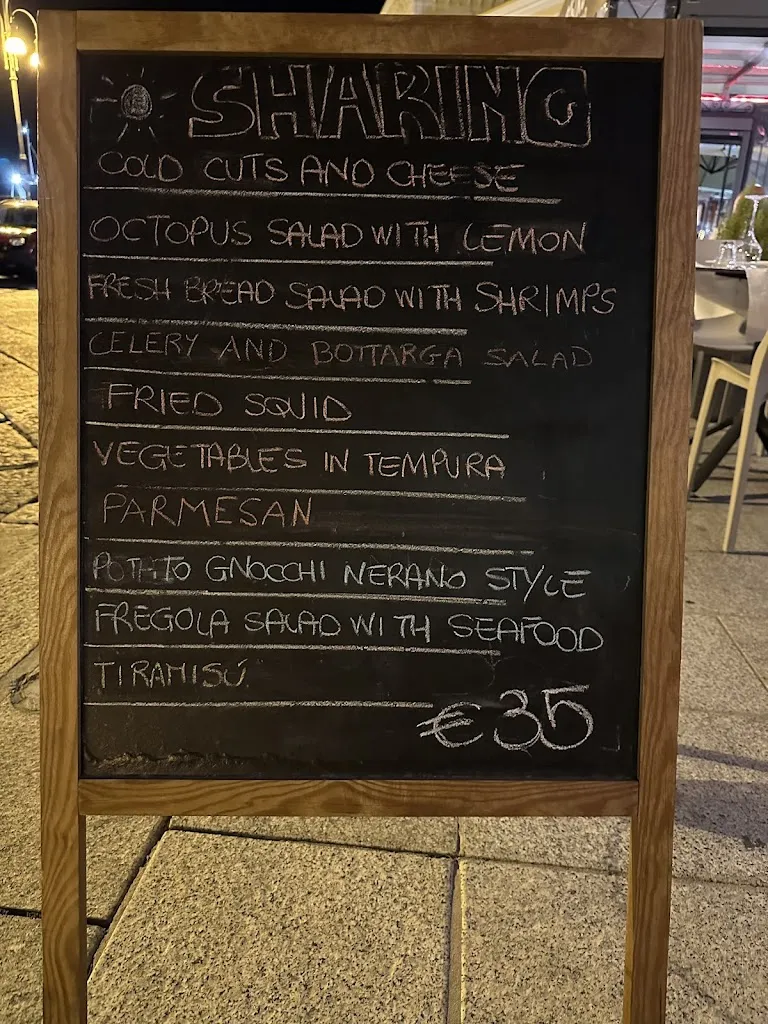 SHARING
COLD CUTS AND CHEESE
OCTOPUS SALAD WITH LEMON
FRESH BREAD SALAD WITH SHRIMPS
CELERY AND BOTTARGA SALAD
FRIED SQUID
VEGETABLES IN TEMPURA
PARMESAN
POTATO GNOCCHI NERANO STYLE
FREGOLA SALAD WITH SEAFOOD
TIRAMISÚ
€35